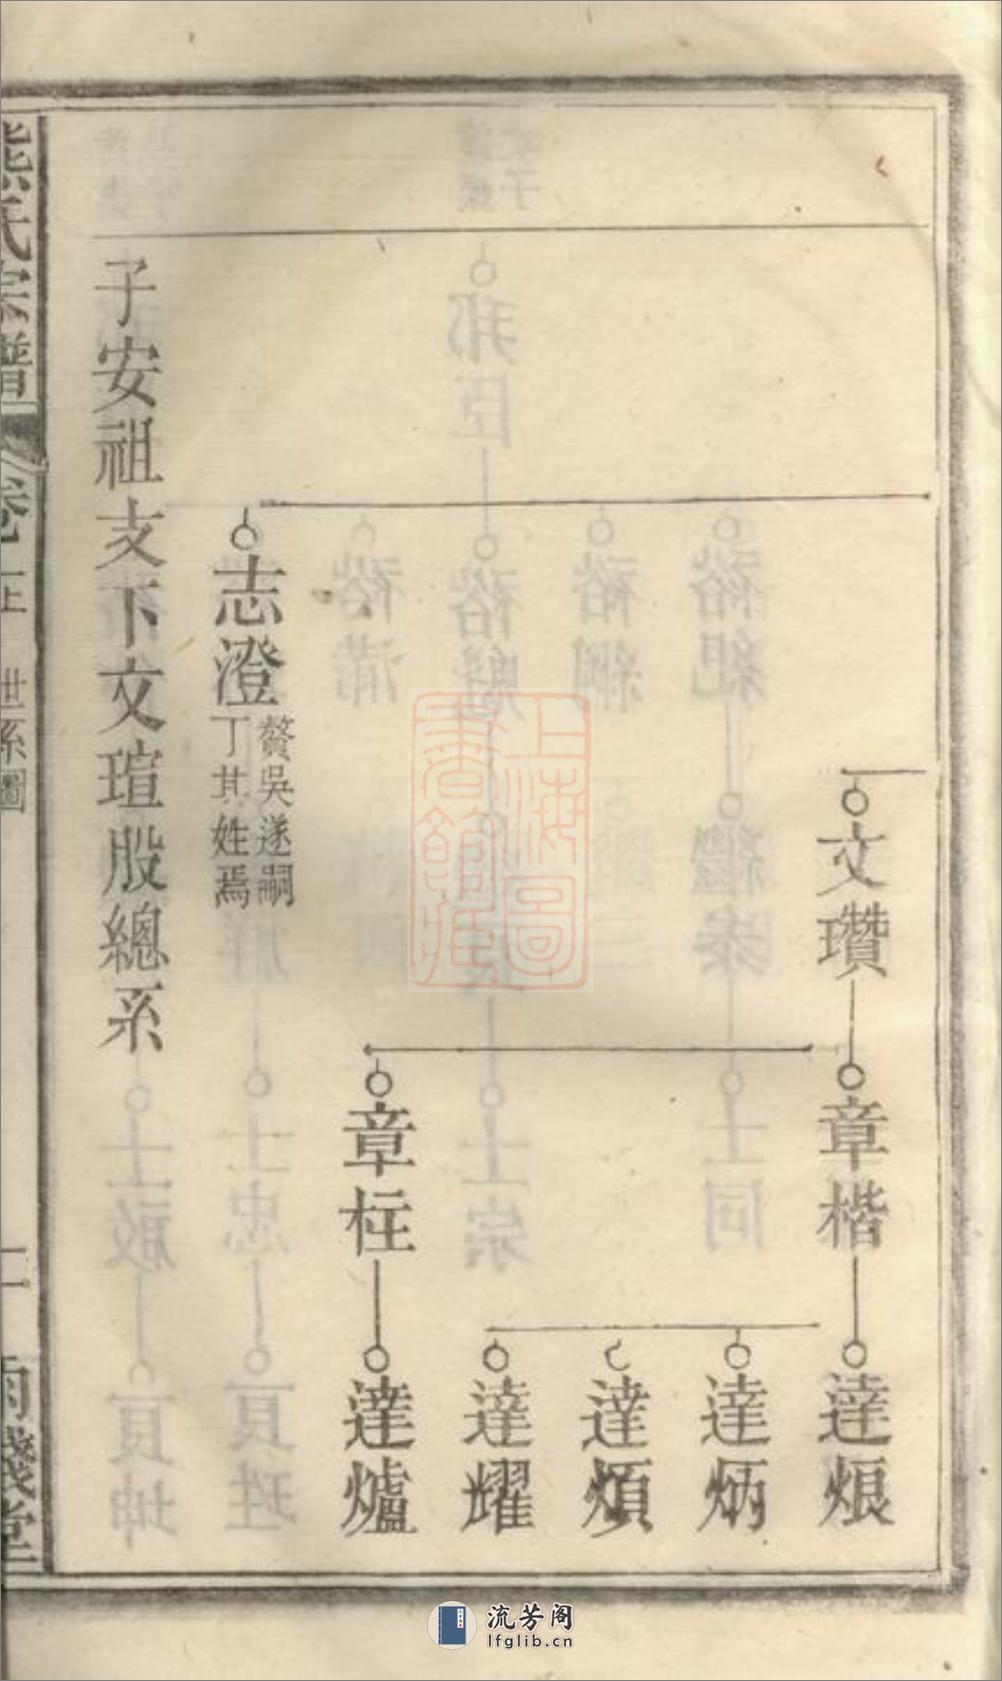 文瓚
章楷
達烺
達炳
達熕
達耀
章柱
達爐
志澄
贅吳遂嗣
丁其姓焉
子安祖支下文瑄股總系
熊氏宗譜
卷上
世系圖
二
上海圖書館藏
流芳阁
lfglib.cn